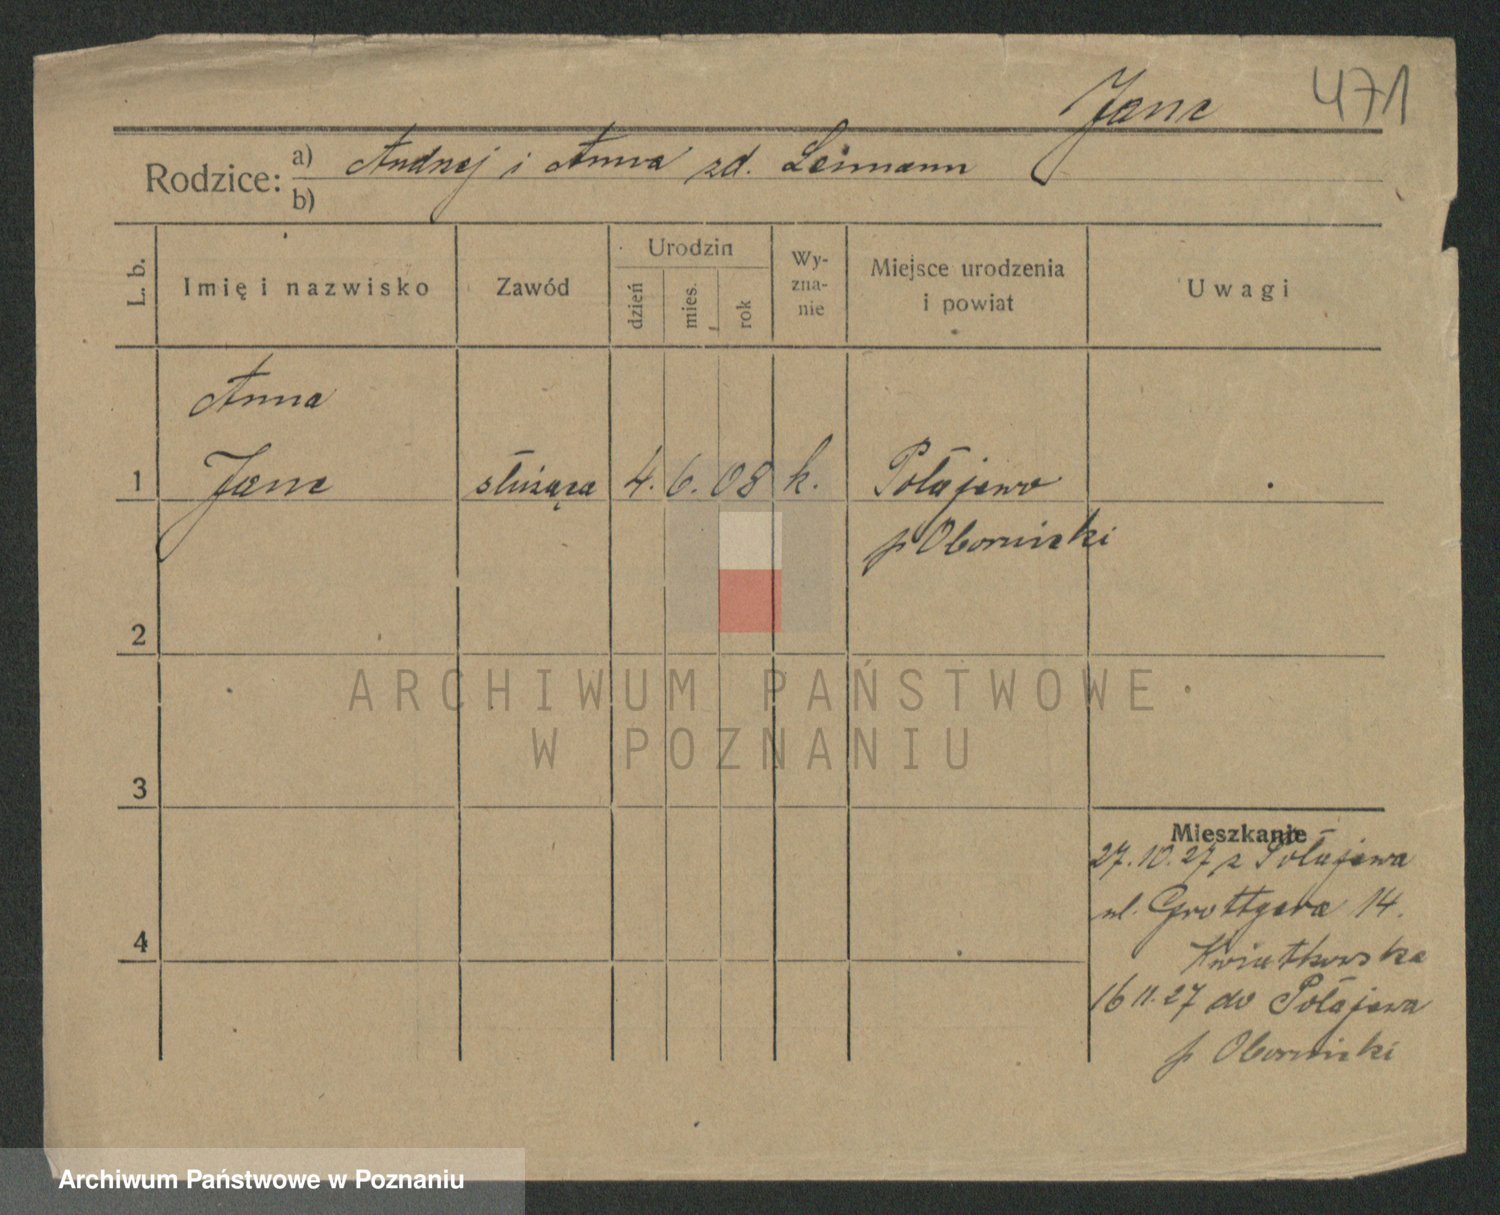 Janc 471
Rodzice: a) Andrzej i Anna zd. Leimann
b)
L. b. Imię i nazwisko Zawód Urodzin dzień mies. rok Wy-zna-nie Miejsce urodzenia i powiat Uwagi
Anna
1 Janc służąca 4. 6. 08 k. Połajewo
p Obornicki
2
ARCHIWUM PAŃSTWOWE
W POZNANIU
3
Mieszkanie
27.10.27 z Połajewa
ul. Grottgera 14.
4
Kwiatkowska
16 11.27 do Połajewa
p Obornicki
Archiwum Państwowe w Poznaniu